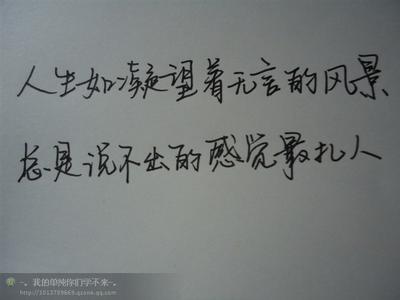 人生如凝望着无言的风景
总是说不出的感觉最扎人
~。我的单纯你们学不来~。
http://1013789669.qzone.qq.com